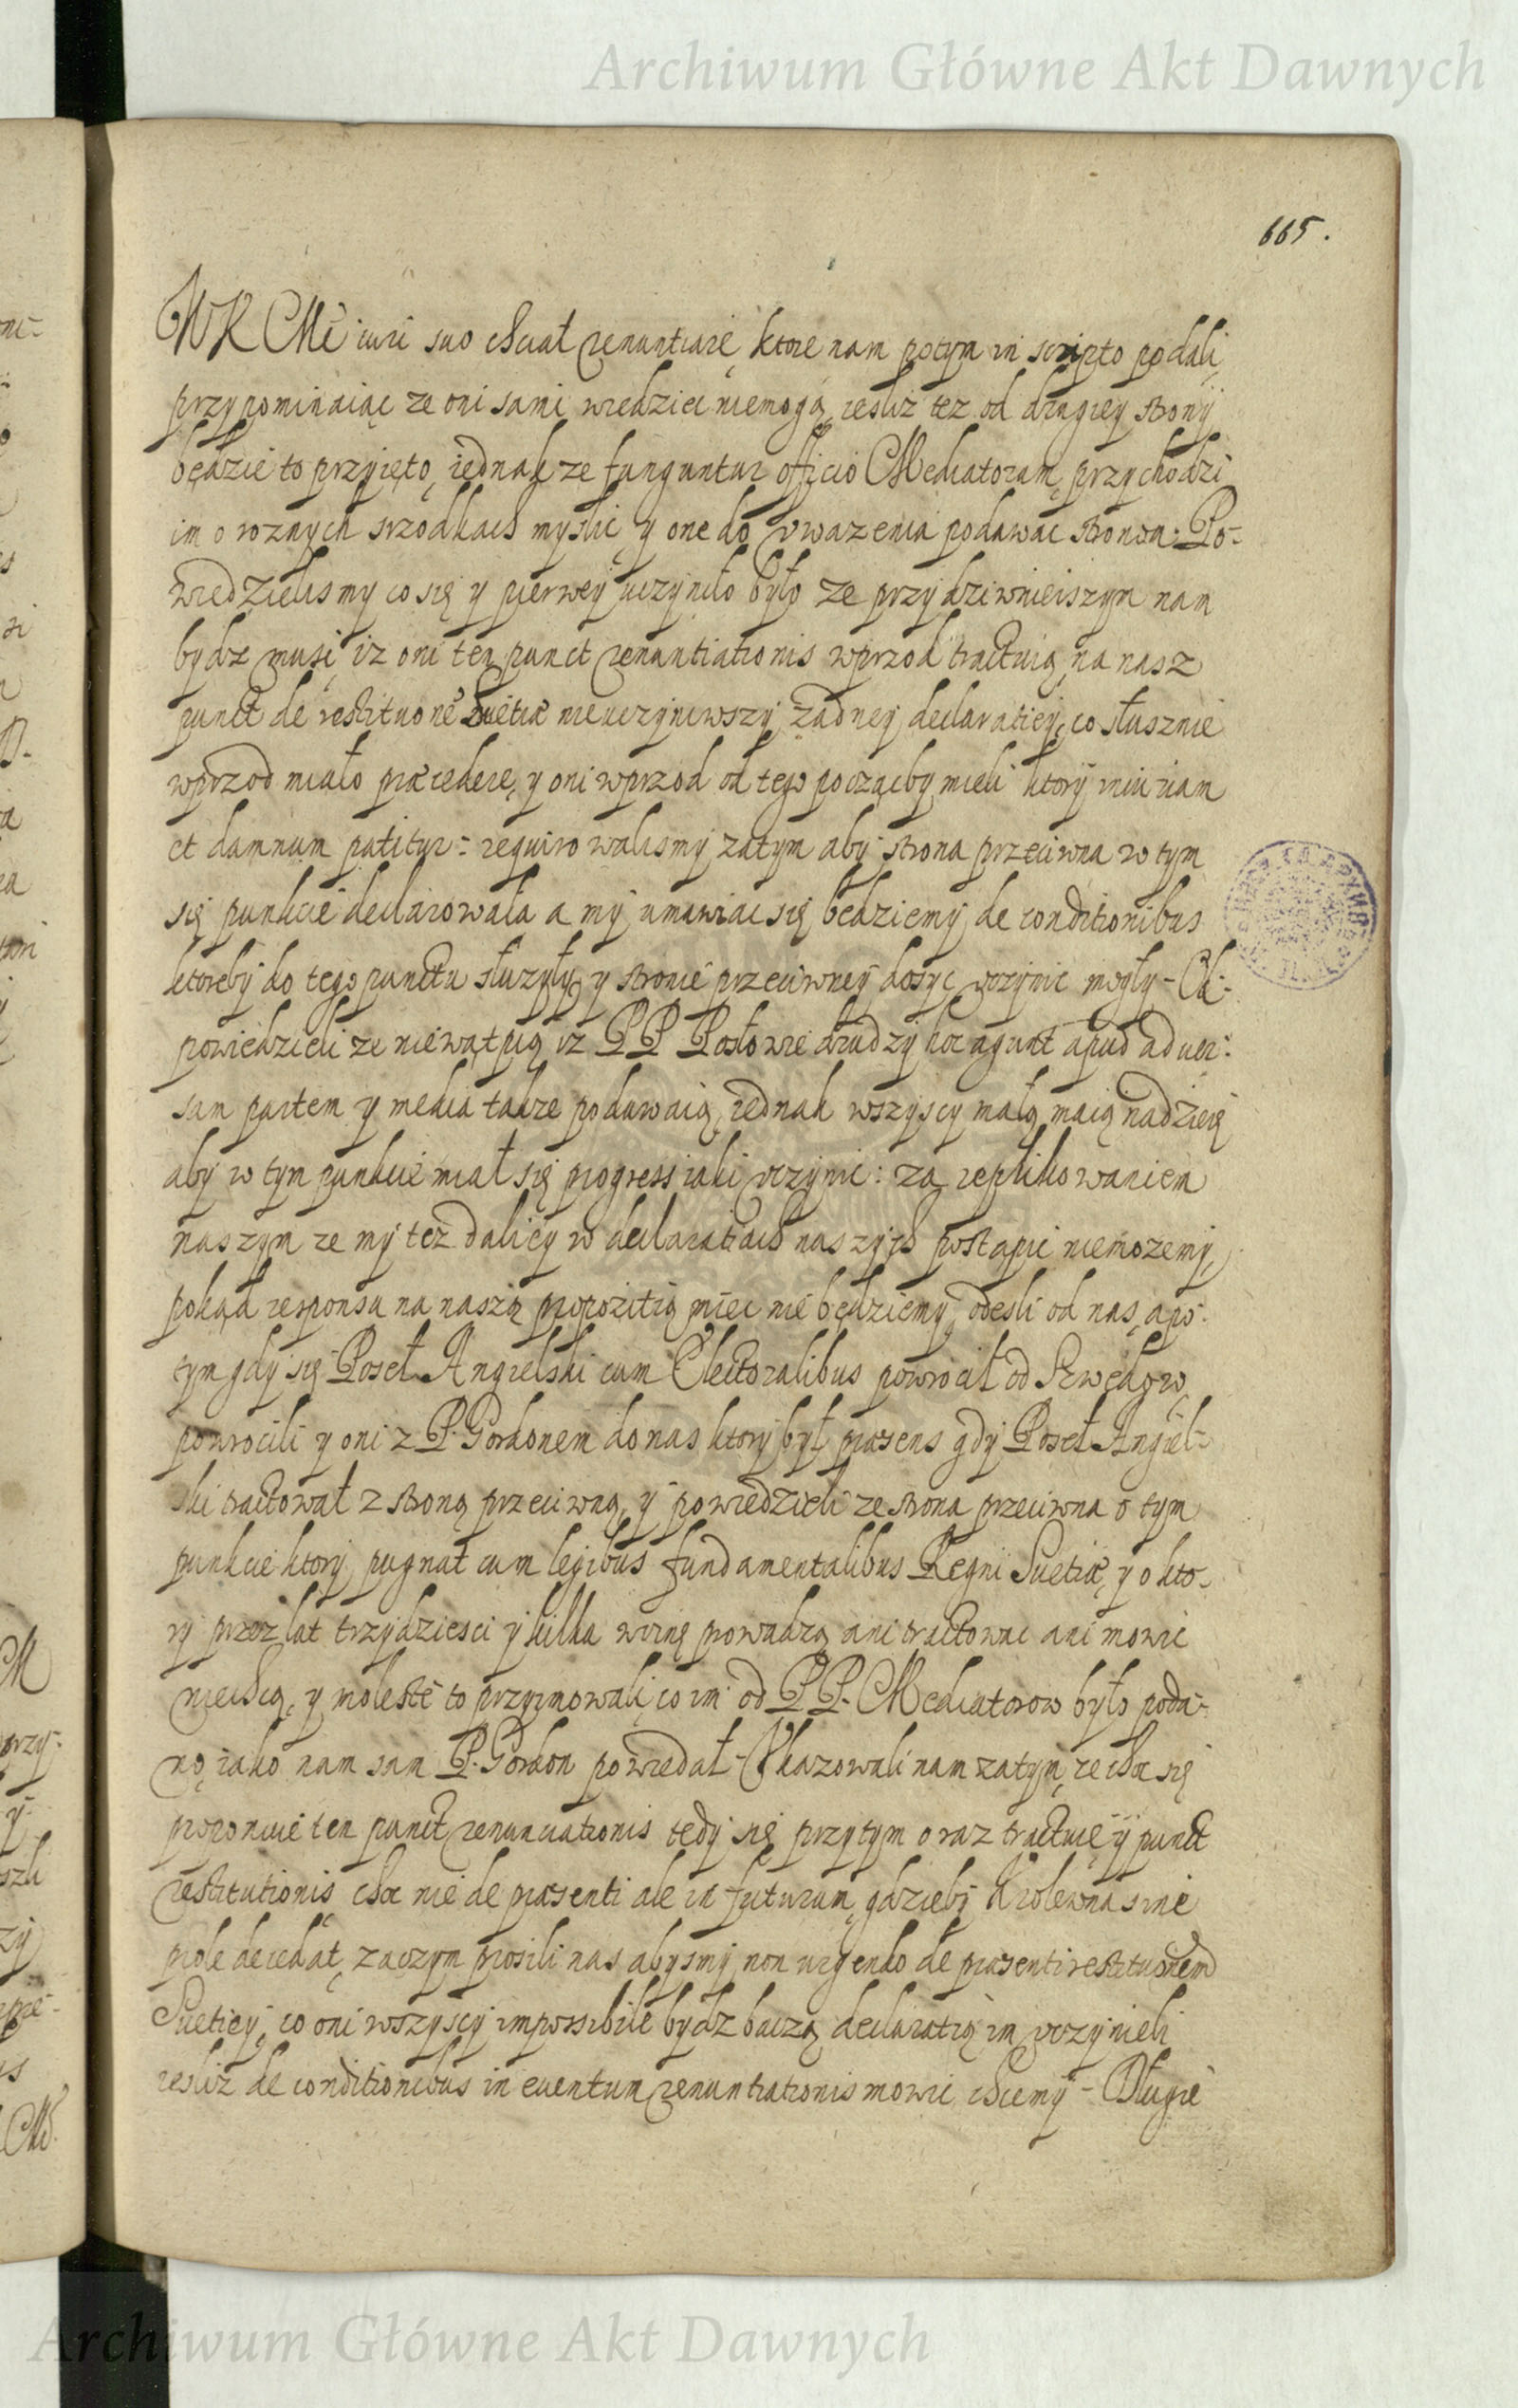 Archiwum Główne Akt Dawnych
665.
WKMć iuri suo chciał renuntiare, ktore nam potym in scripto podali,
przypominaiąc ze oni sami wiedziec niemogą, iesliz tez od drugiey strony
będzie to przyięto, iednak ze funguntur officio Mediatorum, przychodzi
im o roznych srzodkach myslic, y one do uwazenia podawac stronom. Po-
wiedzielismy co się y pierwey uczyniło było ze przydziwnieiszym nam
bydz musi, iz oni ten punct renuntiationis wprzod tractuią, na nasz
punct de restituone Suetiæ nieuczyniwszy zadney declaratiey, co słusznie
wprzod miało præcedere, y oni wprzod od tego począcby mieli ktory iniuriam
et damnum patitur: requirowalismy zatym aby strona przeciwna w tym
się punkcie declarowała a my umawiac się będziemy de conditionibus
ktoreby do tego punctu słuzyły, y stronie przeciwney dosyc uczynic mogły - Od-
powiedzieli ze niewątpią iz PP Posłowie drudzy hoc agunt apud aduer-
sam partem y media takze podawaią, iednak wszyscy małą maią nadzieię
aby w tym punkcie miał się progress iaki uczynic: za replikowaniem
naszym ze my tez daliey w declaratiach naszych postąpic niemozemy,
pokąd responsu na naszą propozitią miec nie będziemy, odesli od nas, a po-
tym gdy się Poseł Angielski cum Electoralibus powrocił od Szwedow,
powrocili y oni z P. Gordonem do nas ktory był præsens gdy Poseł Angiel-
ski tractował z stroną przeciwną, y powiedzieli ze strona przeciwna o tym
punkcie ktory pugnat cum legibus fundamentalibus Regni Suetiæ, y o kto-
ry przez lat trzydziesci y kilka woynę prowadzą ani tractowac ani mowic
niechcą, y moleste to przyimowali, co im od PP. Mediatorow było poda-
no, iako nam sam P. Gordon powiedał - Ukazowali nam zatym, ze choc się
proponuie ten punct renunciationis tedy się przytym oraz tractuie y punct
restitutionis, choc nie de præsenti ale in futurum, gdzieby Krolewna sine
prole decedat, zaczym prosili nas abysmy non urgendo de præsenti restituonem
Suetiey, co oni wszyscy impossibile bydz baczą, declaratią im uczynieli
iesliz de conditionibus in euentum renuntiationis mowic chcemy - Długie
Archiwum Główne Akt Dawnych